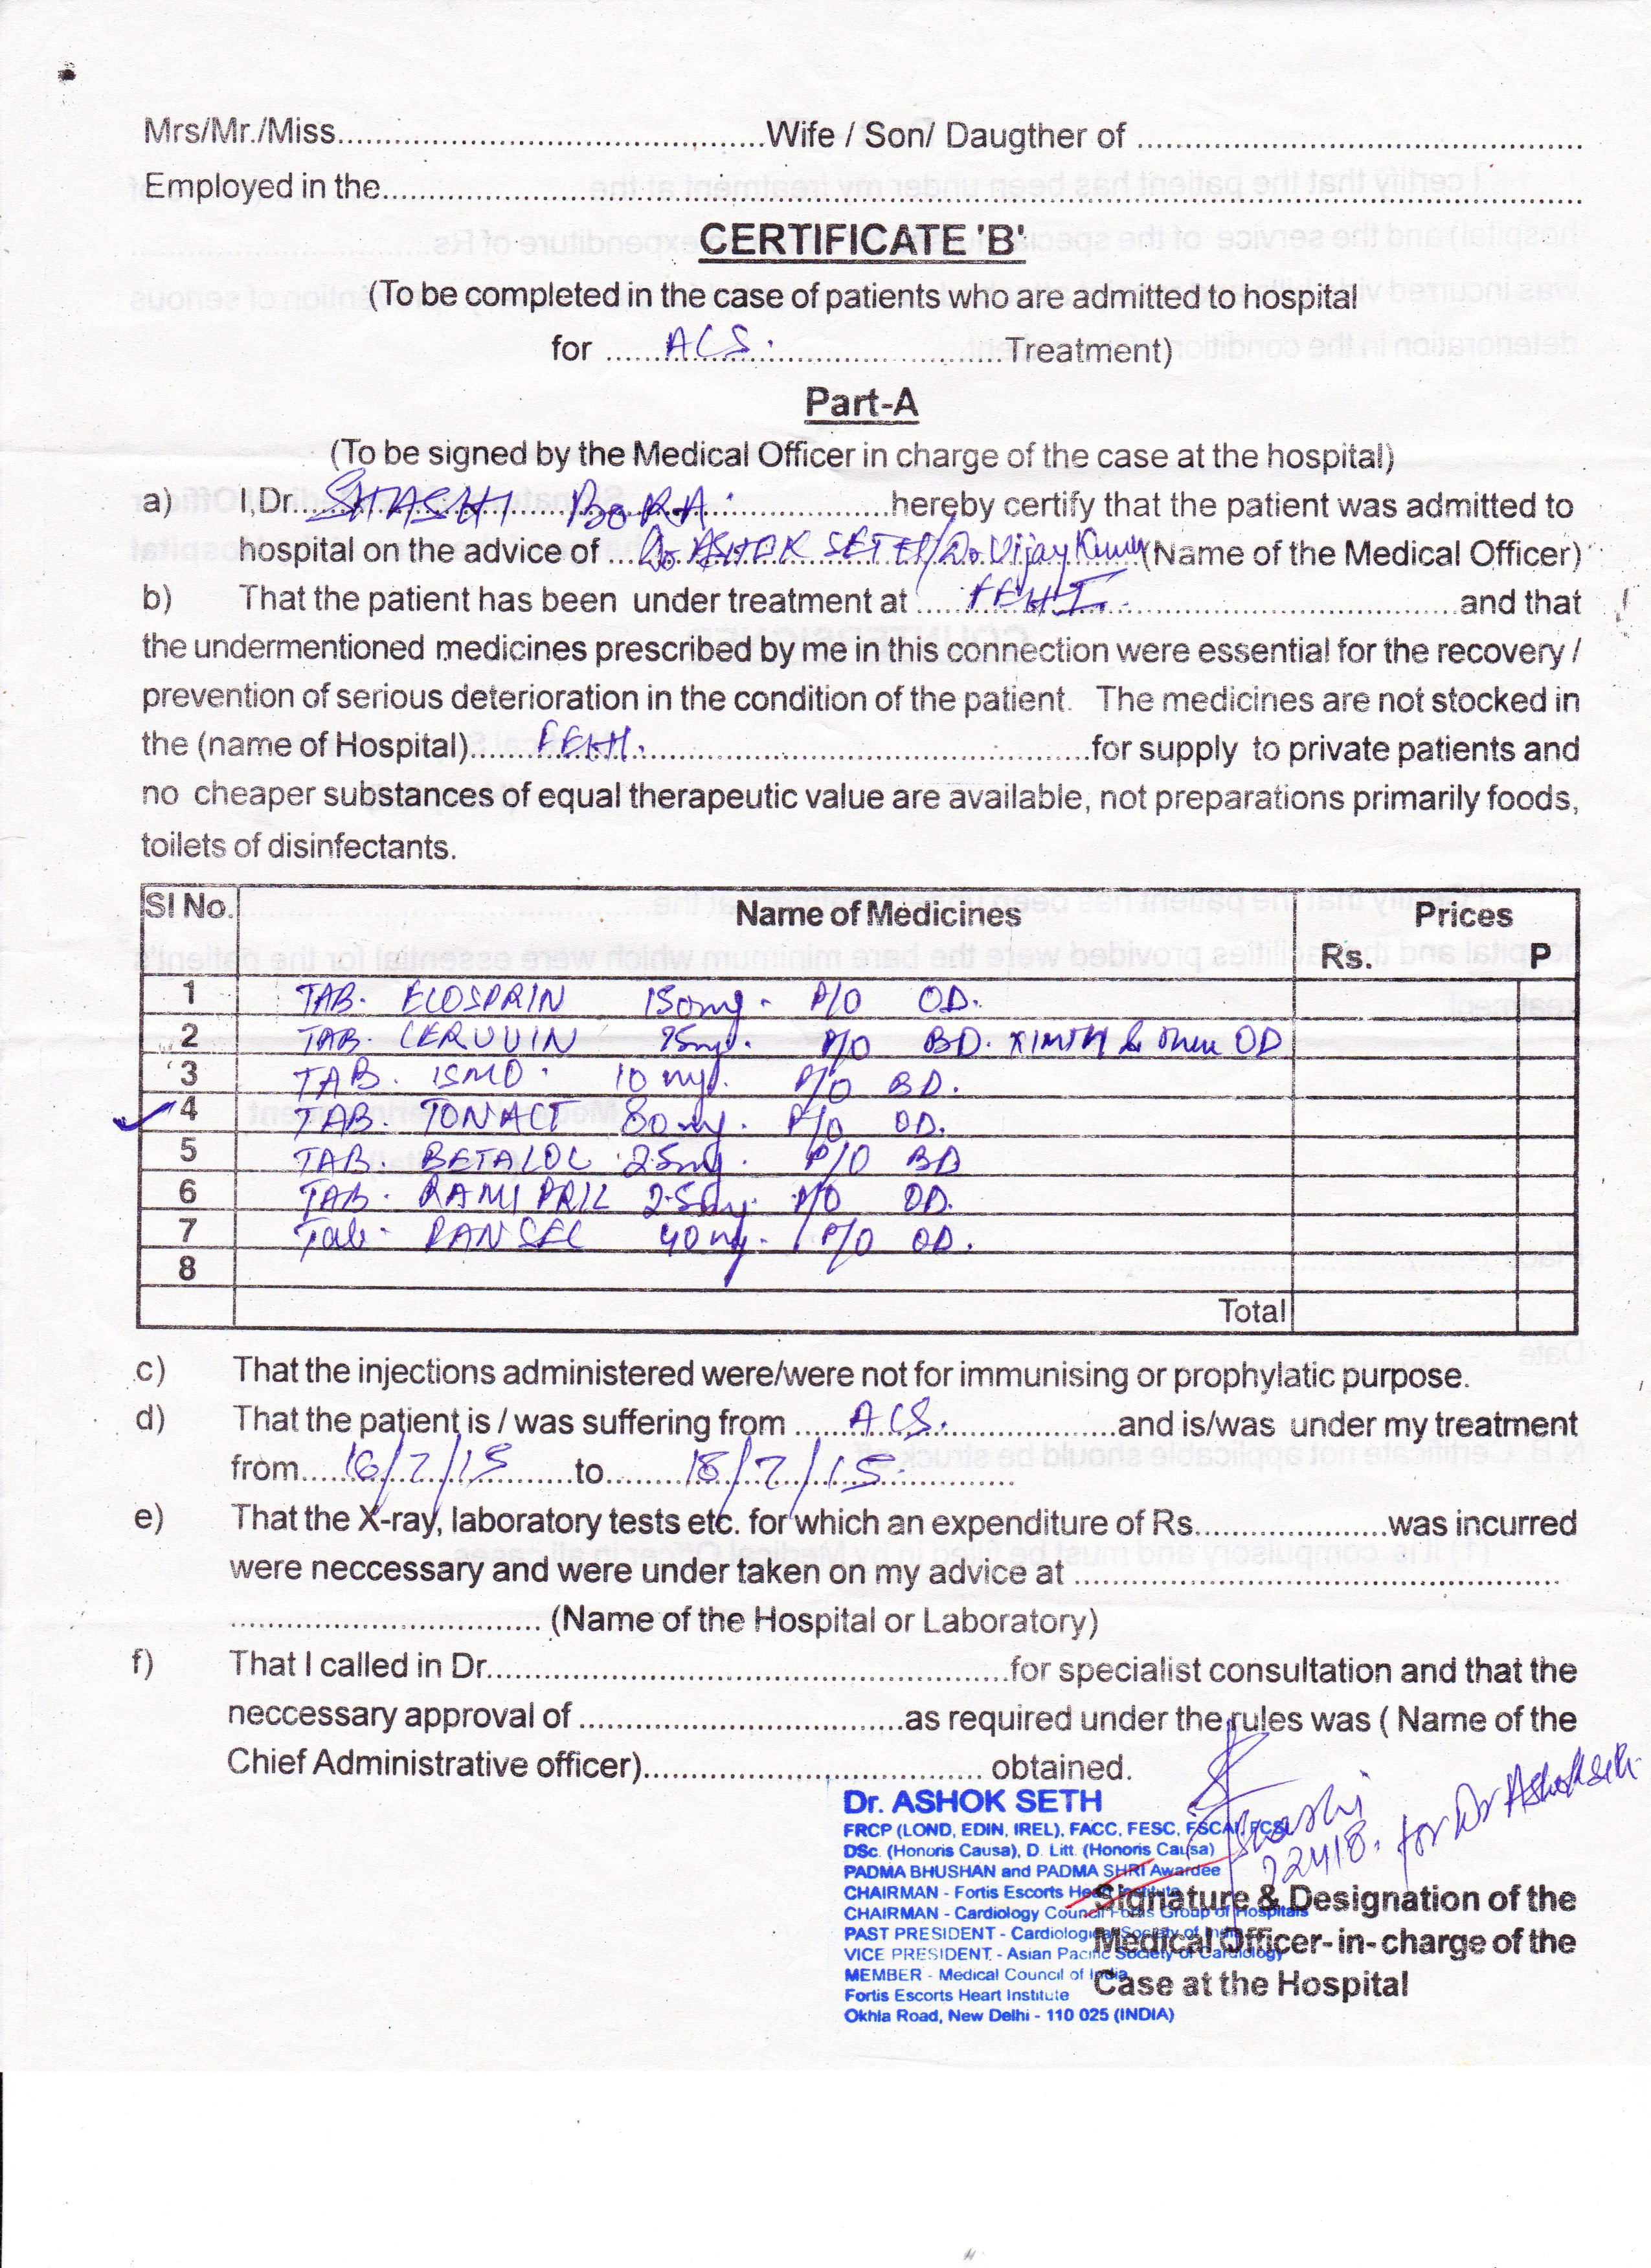 Mrs/Mr./Miss..........................................Wife / Son/ Daugther of ............................................
Employed in the........................................................................................................................
CERTIFICATE 'B'
(To be completed in the case of patients who are admitted to hospital
for ......ACS.......................................Treatment)
Part-A
(To be signed by the Medical Officer in charge of the case at the hospital)
a) I,Dr...SHASHI BORA...................hereby certify that the patient was admitted to
hospital on the advice of ...Dr ASHOK SETH/Dr Vijay Kumar(Name of the Medical Officer)
b) That the patient has been under treatment at .....FEHI.....................................and that
the undermentioned medicines prescribed by me in this connection were essential for the recovery /
prevention of serious deterioration in the condition of the patient. The medicines are not stocked in
the (name of Hospital).......FEHI..............................................for supply to private patients and
no cheaper substances of equal therapeutic value are available, not preparations primarily foods,
toilets of disinfectants.
Sl No. Name of Medicines Prices
Rs. P
1 TAB. ECOSPRIN 150mg. P/O OD.
2 TAB. CERUVIN 75mg. P/O BD. X1MTH & then OD
3 TAB. ISMO. 10 mg. P/O BD.
4 TAB. TONACT 80mg. P/O OD.
5 TAB. BETALOC 25mg. P/O BD
6 TAB. RAMIPRIL 2.5mg. P/O OD.
7 Tab. PANSEC 40mg. P/O OD.
8
Total
c) That the injections administered were/were not for immunising or prophylatic purpose.
d) That the patient is / was suffering from ......ACS...................and is/was under my treatment
from....16/7/15..........to........18/7/15................
e) That the X-ray, laboratory tests etc. for which an expenditure of Rs.....................was incurred
were neccessary and were under taken on my advice at ......................................................
.................................. (Name of the Hospital or Laboratory)
f) That I called in Dr.........................................................for specialist consultation and that the
neccessary approval of ...................................as required under the rules was ( Name of the
Chief Administrative officer)..................................... obtained.
Shashi
22418. for Dr Ashok Seth
Dr. ASHOK SETH
FRCP (LOND, EDIN, IREL), FACC, FESC, FSCAI, FCSI
DSc. (Honoris Causa), D. Litt. (Honoris Causa)
PADMA BHUSHAN and PADMA SHRI Awardee
CHAIRMAN - Fortis Escorts Heart Institute
CHAIRMAN - Cardiology Council Fortis Group of Hospitals
PAST PRESIDENT - Cardiological Society of India
VICE PRESIDENT - Asian Pacific Society of Cardiology
MEMBER - Medical Council of India
Fortis Escorts Heart Institute
Okhla Road, New Delhi - 110 025 (INDIA)
Signature & Designation of the
Medical Officer-in-charge of the
Case at the Hospital